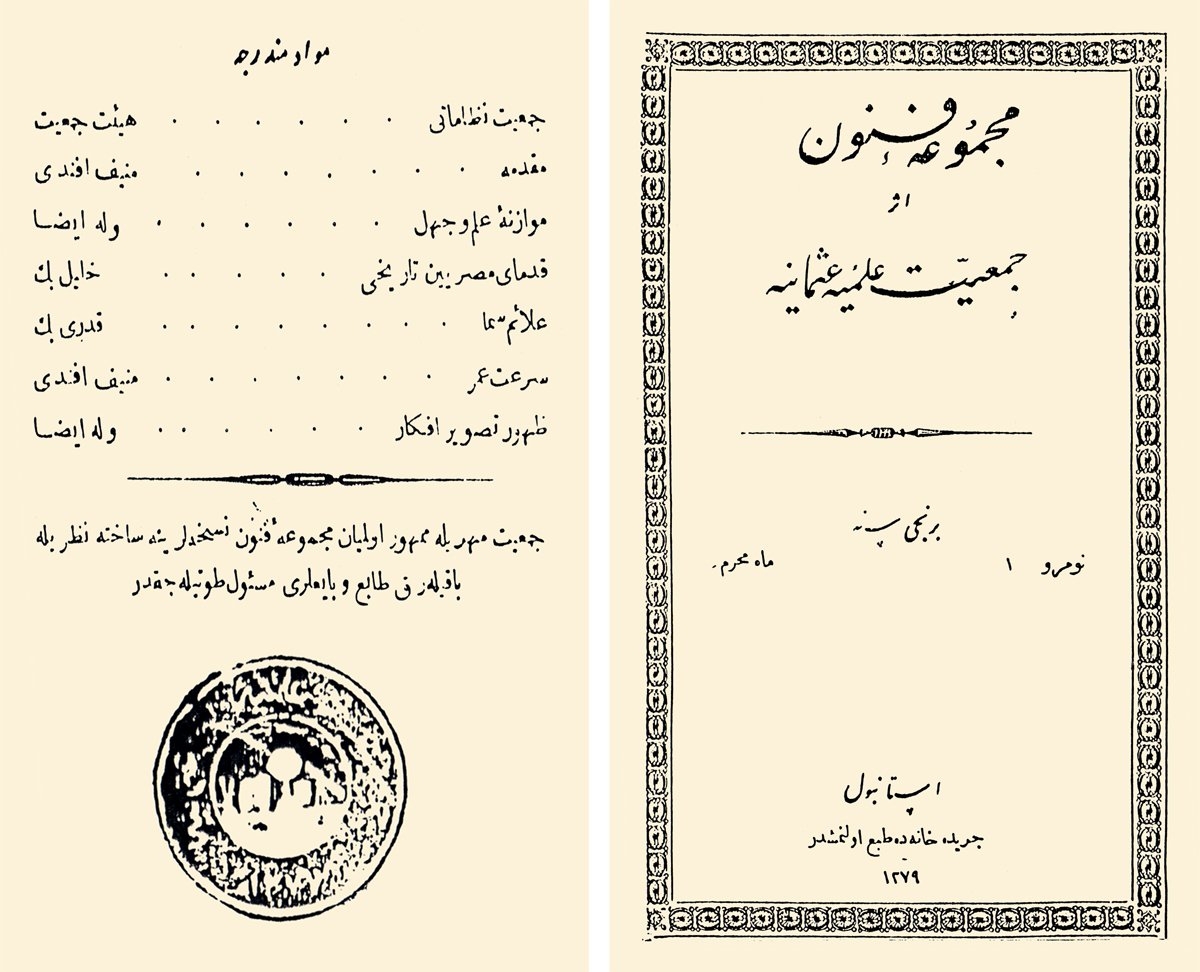 مجموعۀ فنون
اثر
جمعیّت علمیۀ عثمانیه
برنجی سنه
نومرو ١ ماه محرم
استانبول
جریده خانه ده طبع اولنمشدر
١٢٧٩
مواد مندرجه
جمعیت نظاماتی . . . . . . هیئت جمعیت
مقدمه . . . . . . . منیف افندی
موازنۀ علم و جهل . . . . . . وله ایضا
قدمای مصریین تاریخی . . . . . خلیل بك
علائم سما . . . . . . . . قدری بك
سرعت عمر . . . . . . . منیف افندی
ظهور تصویر افکار . . . . . . وله ایضا
جمعیت مهریله ممهور اولمیان مجموعۀ فنون نسخه‌لرینه ساخته نظریله
باقیله‌رق طابع و بایعلری مسئول طوتیله‌جقدر